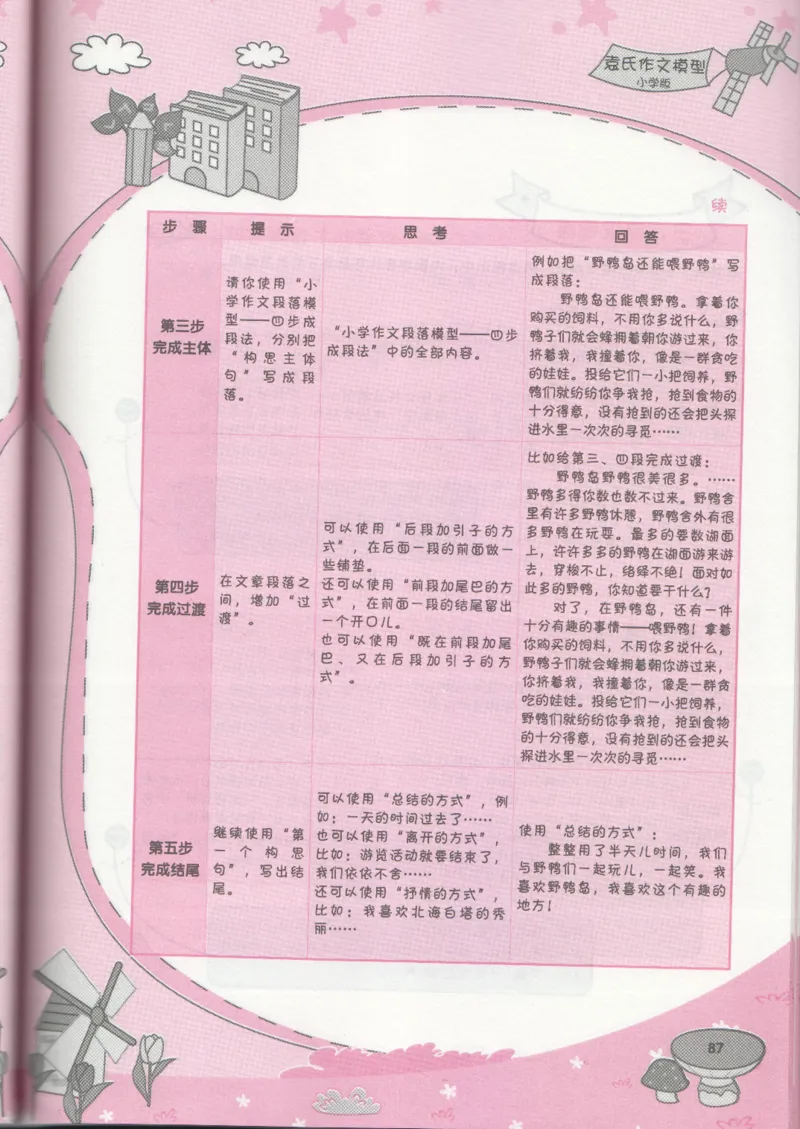 袁氏作文模型
小学版
续
步骤
提示
思考
回答
第三步
完成主体
请你使用“小
学作文段落模
型——四步成
段法，分别把
“构思主体
句”写成段
落。
“小学作文段落模型——四步
成段法”中的全部内容。
例如把“野鸭岛还能喂野鸭”写
成段落：
野鸭岛还能喂野鸭。拿着你
购买的饲料，不用你多说什么，野
鸭子们就会蜂拥着朝你游过来，你
挤着我，我撞着你，像是一群贪吃
的娃娃。投给它们一小把饲养，野
鸭们就纷纷你争我抢，抢到食物的
十分得意，没有抢到的还会把头探
进水里一次次的寻觅……
第四步
完成过渡
在文章段落之
间，增加“过
渡”。
可以使用“后段加引子的方
式”，在后面一段的前面做一
些铺垫。
还可以使用“前段加尾巴的方
式”，在前面一段的结尾留出
一个开口儿。
也可以使用“既在前段加尾
巴、又在后段加引子的方
式”。
比如给第三、四段完成过渡：
野鸭岛野鸭很美很多。……
野鸭多得你数也数不过来。野鸭舍
里有许多野鸭休憩，野鸭舍外有很
多野鸭在玩耍。最多的要数湖面
上，许许多多的野鸭在湖面游来游
去，穿梭不止，络绎不绝！面对如
此多的野鸭，你知道要干什么？
对了，在野鸭岛，还有一件
十分有趣的事情——喂野鸭！拿着
你购买的饲料，不用你多说什么，
野鸭子们就会蜂拥着朝你游过来，
你挤着我，我撞着你，像是一群贪
吃的娃娃。投给它们一小把饲养，
野鸭们就纷纷你争我抢，抢到食物
的十分得意，没有抢到的还会把头
探进水里一次次的寻觅……
第五步
完成结尾
继续使用“第
一个构思
句”，写出结
尾。
可以使用“总结的方式”，例
如：一天的时间过去了……
也可以使用“离开的方式”，
比如：游览活动就要结束了，
我们依依不舍……
还可以使用“抒情的方式”，
比如：我喜欢北海白塔的秀
丽……
使用“总结的方式”：
整整用了半天儿时间，我们
与野鸭们一起玩儿，一起笑。我
喜欢野鸭岛，我喜欢这个有趣的
地方！
87